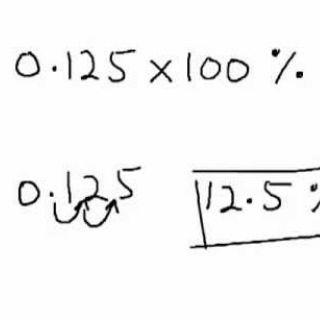 0.125 × 100 %
0.125 12.5 %